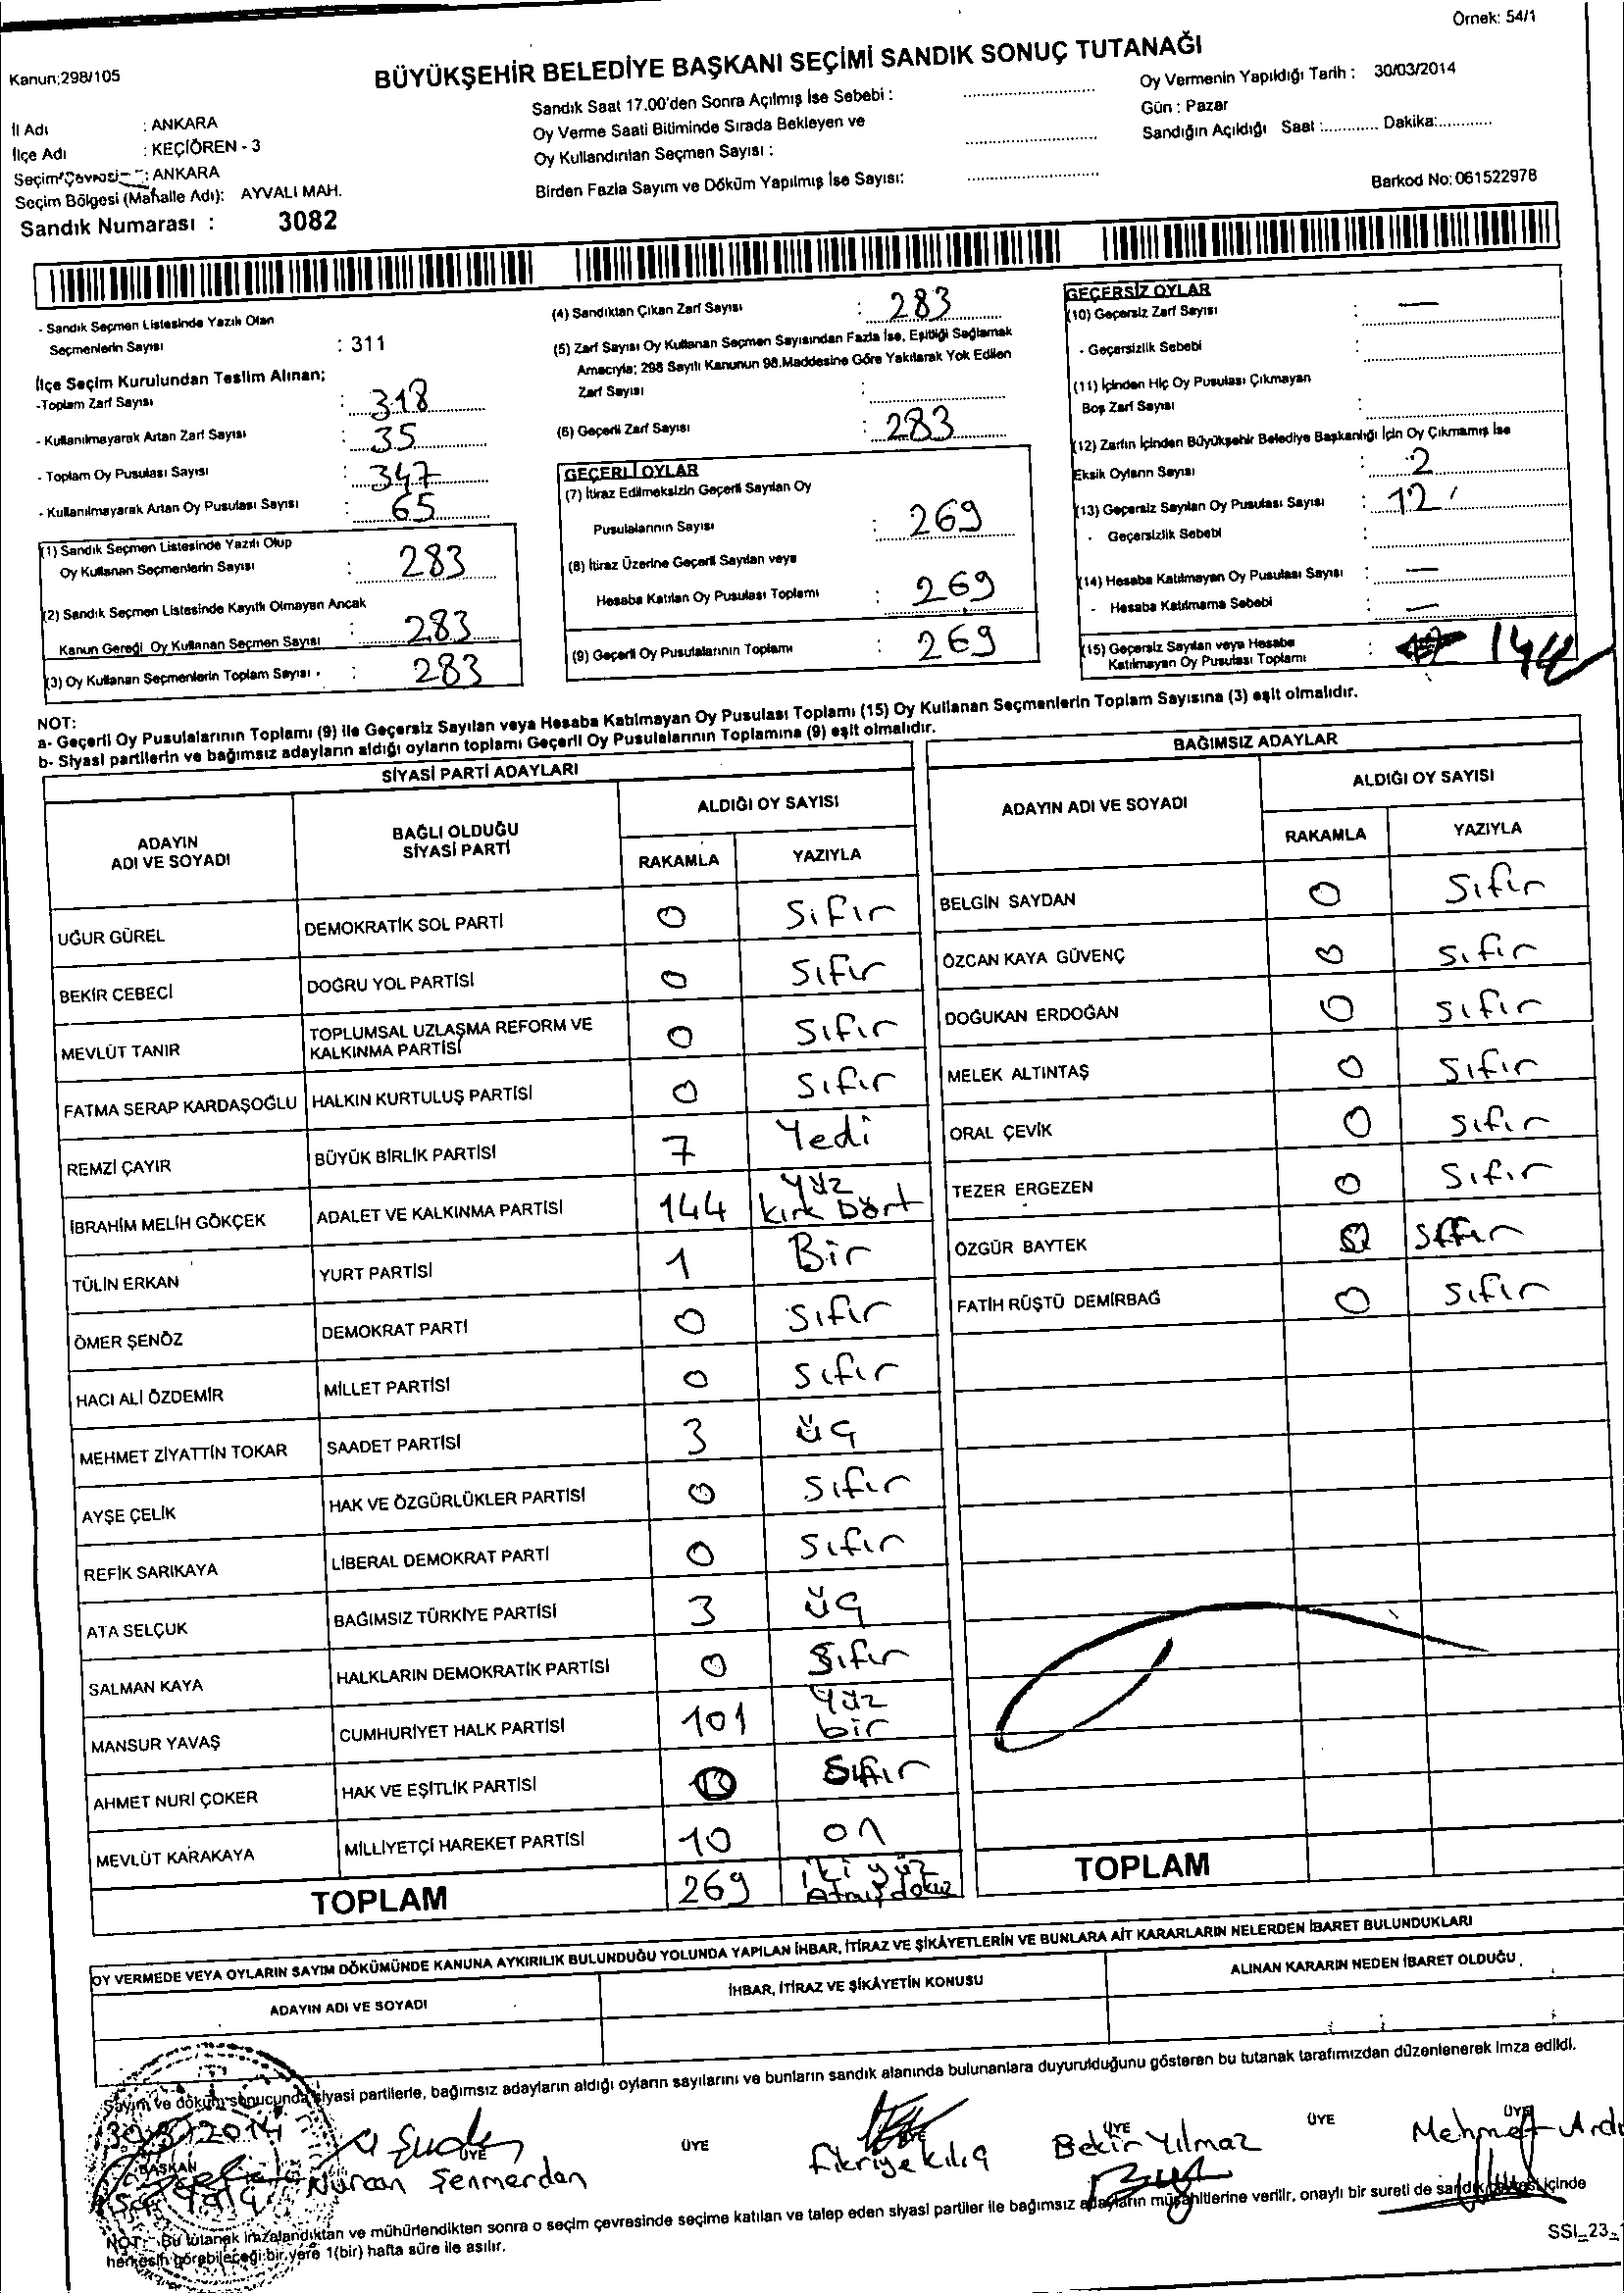 Örnek: 54/1
Kanun;298/105
BÜYÜKŞEHİR BELEDİYE BAŞKANI SEÇİMİ SANDIK SONUÇ TUTANAĞI
İl Adı : ANKARA
İlçe Adı : KEÇİÖREN - 3
Seçim Çevresi : ANKARA
Seçim Bölgesi (Mahalle Adı): AYVALI MAH.
Sandık Numarası : 3082
Sandık Saat 17.00'den Sonra Açılmış İse Sebebi :
Oy Verme Saati Bitiminde Sırada Bekleyen ve
Oy Kullandırılan Seçmen Sayısı :
Birden Fazla Sayım ve Döküm Yapılmış İse Sayısı:
Oy Vermenin Yapıldığı Tarih : 30/03/2014
Gün : Pazar
Sandığın Açıldığı Saat :............ Dakika:............
Barkod No: 061522978
- Sandık Seçmen Listesinde Yazılı Olan
Seçmenlerin Sayısı : 311
İlçe Seçim Kurulundan Teslim Alınan;
-Toplam Zarf Sayısı : 318
- Kullanılmayarak Artan Zarf Sayısı : 35
- Toplam Oy Pusulası Sayısı : 347
- Kullanılmayarak Artan Oy Pusulası Sayısı : 65
(1) Sandık Seçmen Listesinde Yazılı Olup
Oy Kullanan Seçmenlerin Sayısı : 283
(2) Sandık Seçmen Listesinde Kayıtlı Olmayan Ancak
Kanun Gereği Oy Kullanan Seçmen Sayısı : 283
(3) Oy Kullanan Seçmenlerin Toplam Sayısı : 283
(4) Sandıktan Çıkan Zarf Sayısı : 283
(5) Zarf Sayısı Oy Kullanan Seçmen Sayısından Fazla İse, Eşitliği Sağlamak
Amacıyla; 298 Sayılı Kanunun 98.Maddesine Göre Yakılarak Yok Edilen
Zarf Sayısı :
(6) Geçerli Zarf Sayısı : 283
GEÇERLİ OYLAR
(7) İtiraz Edilmeksizin Geçerli Sayılan Oy
Pusulalarının Sayısı : 269
(8) İtiraz Üzerine Geçerli Sayılan veya
Hesaba Katılan Oy Pusulası Toplamı : 269
(9) Geçerli Oy Pusulalarının Toplamı : 269
GEÇERSİZ OYLAR
(10) Geçersiz Zarf Sayısı : —
- Geçersizlik Sebebi :
(11) İçinden Hiç Oy Pusulası Çıkmayan
Boş Zarf Sayısı :
(12) Zarfın İçinden Büyükşehir Belediye Başkanlığı İçin Oy Çıkmamış İse
Eksik Oyların Sayısı : 2
(13) Geçersiz Sayılan Oy Pusulası Sayısı : 12
- Geçersizlik Sebebi :
(14) Hesaba Katılmayan Oy Pusulası Sayısı : —
- Hesaba Katılmama Sebebi : —
(15) Geçersiz Sayılan veya Hesaba
Katılmayan Oy Pusulası Toplamı : 14
NOT:
a- Geçerli Oy Pusulalarının Toplamı (9) ile Geçersiz Sayılan veya Hesaba Katılmayan Oy Pusulası Toplamı (15) Oy Kullanan Seçmenlerin Toplam Sayısına (3) eşit olmalıdır.
b- Siyasi partilerin ve bağımsız adayların aldığı oyların toplamı Geçerli Oy Pusulalarının Toplamına (9) eşit olmalıdır.
SİYASİ PARTİ ADAYLARI
ADAYIN ADI VE SOYADI BAĞLI OLDUĞU SİYASİ PARTİ ALDIĞI OY SAYISI
RAKAMLA YAZIYLA
UĞUR GÜREL DEMOKRATİK SOL PARTİ 0 Sıfır
BEKİR CEBECİ DOĞRU YOL PARTİSİ 0 Sıfır
MEVLÜT TANIR TOPLUMSAL UZLAŞMA REFORM VE KALKINMA PARTİSİ 0 Sıfır
FATMA SERAP KARDAŞOĞLU HALKIN KURTULUŞ PARTİSİ 0 Sıfır
REMZİ ÇAYIR BÜYÜK BİRLİK PARTİSİ 7 Yedi
İBRAHİM MELİH GÖKÇEK ADALET VE KALKINMA PARTİSİ 144 yüz kırk Dört
TÜLİN ERKAN YURT PARTİSİ 1 Bir
ÖMER ŞENÖZ DEMOKRAT PARTİ 0 Sıfır
HACI ALİ ÖZDEMİR MİLLET PARTİSİ 0 Sıfır
MEHMET ZİYATTİN TOKAR SAADET PARTİSİ 3 üç
AYŞE ÇELİK HAK VE ÖZGÜRLÜKLER PARTİSİ 0 Sıfır
REFİK SARIKAYA LİBERAL DEMOKRAT PARTİ 0 Sıfır
ATA SELÇUK BAĞIMSIZ TÜRKİYE PARTİSİ 3 üç
SALMAN KAYA HALKLARIN DEMOKRATİK PARTİSİ 0 Sıfır
MANSUR YAVAŞ CUMHURİYET HALK PARTİSİ 101 yüz bir
AHMET NURİ ÇOKER HAK VE EŞİTLİK PARTİSİ 0 Sıfır
MEVLÜT KARAKAYA MİLLİYETÇİ HAREKET PARTİSİ 10 on
TOPLAM 269 iki yüz Atmış dokuz
BAĞIMSIZ ADAYLAR
ADAYIN ADI VE SOYADI ALDIĞI OY SAYISI
RAKAMLA YAZIYLA
BELGİN SAYDAN 0 Sıfır
ÖZCAN KAYA GÜVENÇ 0 Sıfır
DOĞUKAN ERDOĞAN 0 Sıfır
MELEK ALTINTAŞ 0 Sıfır
ORAL ÇEVİK 0 Sıfır
TEZER ERGEZEN 0 Sıfır
ÖZGÜR BAYTEK Sıfır
FATİH RÜŞTÜ DEMİRBAĞ 0 Sıfır
TOPLAM
OY VERMEDE VEYA OYLARIN SAYIM DÖKÜMÜNDE KANUNA AYKIRILIK BULUNDUĞU YOLUNDA YAPILAN İHBAR, İTİRAZ VE ŞİKÂYETLERİN VE BUNLARA AİT KARARLARIN NELERDEN İBARET BULUNDUKLARI
ADAYIN ADI VE SOYADI İHBAR, İTİRAZ VE ŞİKÂYETİN KONUSU ALINAN KARARIN NEDEN İBARET OLDUĞU
Sayım ve döküm sonucunda siyasi partilerle, bağımsız adayların aldığı oyların sayılarını ve bunların sandık alanında bulunanlara duyurulduğunu gösteren bu tutanak tarafımızdan düzenlenerek imza edildi.
2014
BAŞKAN ÜYE ÜYE ÜYE ÜYE ÜYE
Nurcan Şenmerdan Fikriye kılıç Bekir Yılmaz Mehmet
NOT: Bu tutanak imzalandıktan ve mühürlendikten sonra o seçim çevresinde seçime katılan ve talep eden siyasi partiler ile bağımsız adayların müşahitlerine verilir, onaylı bir sureti de sandık içinde
herkesin görebileceği bir yere 1(bir) hafta süre ile asılır.
SSI_23_